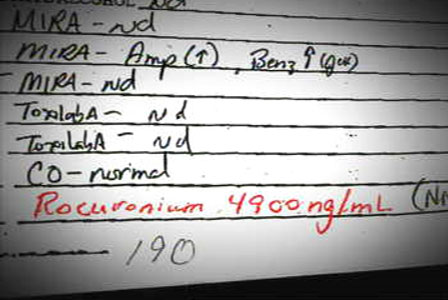 MIRA - nd
MIRA - Amp (↑), Benz ↑
MIRA - nd
ToxilabA - nd
ToxilabA - nd
CO - normal
Rocuronium 4900 ng/mL
190